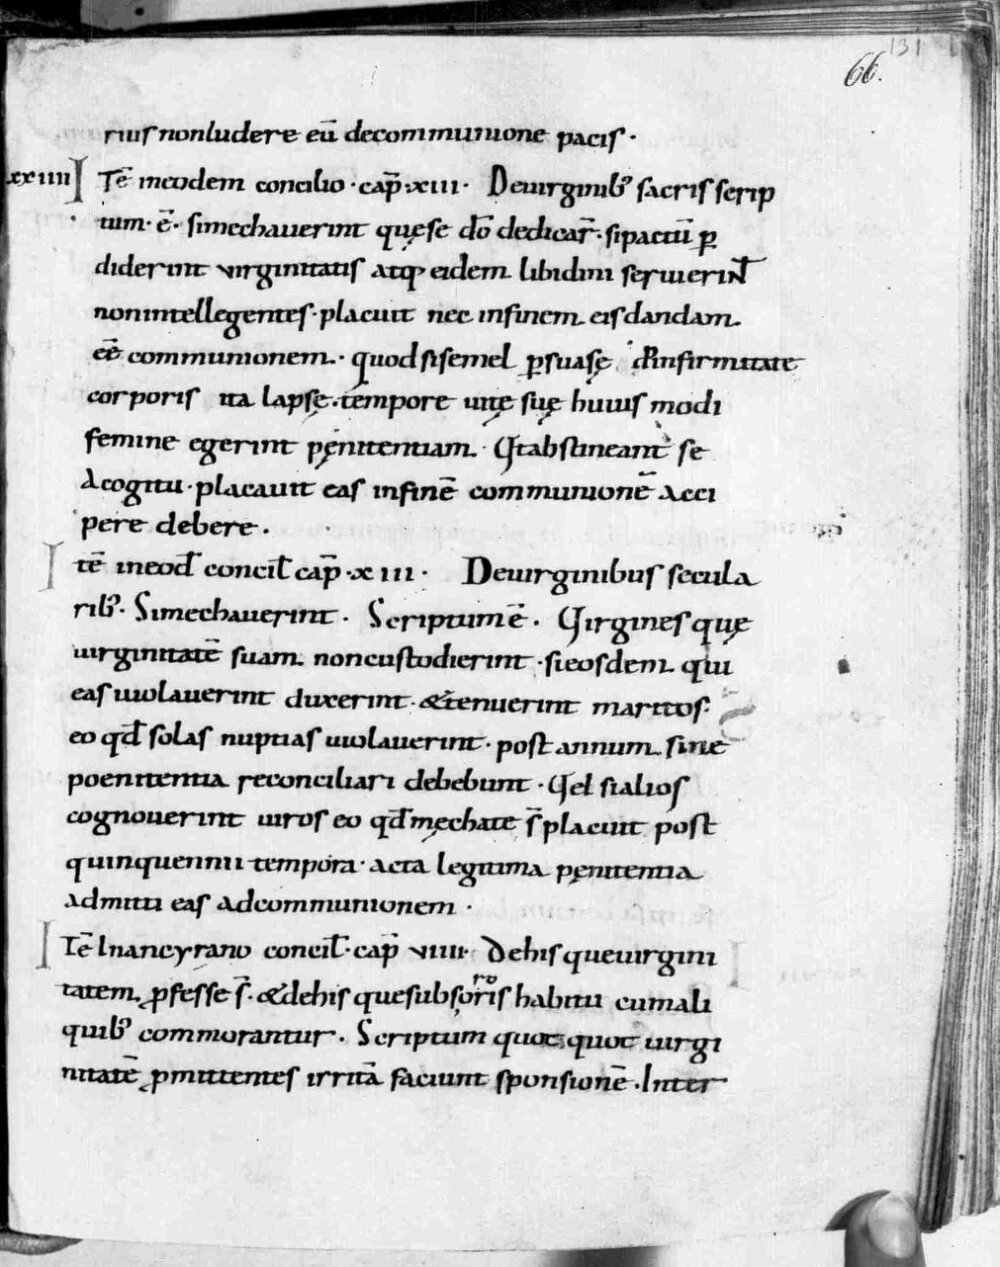 131
66.
rius nonludere eū decommunione pacis ·
xxiiii ITē ineodem concilio · cap̄ · xiii · Deuirginib; sacris scrip
tum · ē · simechauerint quęse dō dedicar̄ · sipactū ꝑ
diderint virginitatis atq; eidem libidini seruierint
nonintellegentes · placuit nec infinem eisdandam
eē communionem · quod sisemel ꝑsuasę infirmitate
corporis ita lapsę · tempore uitę suę huius modi
femine egerint pęnitentiam · Et abstineant se
Acogitu · placauit eas infinē communionē Acci
pere debere ·
Itē ineod concil cap̄ · xiii · Deuirginibus secula
rib; · Simechauerint · Scriptum ē · Virgines quę
uirginitatē suam noncustodierint · sieosdem qui
eas uiolauerint duxerint · &tenuerint maritos ·
eo qđ solas nuptias uiolauerint · post annum sine
poenitentia reconciliari debebunt · Vel sialios
cognouerint uiros eo qđ męchate s̄ placuit post
quinquennii tempora · acta legitima pęnitentia
admitti eas adcommunionem ·
ITē Inancyrano concil · cap̄ viiii · Dehis queuirgini
tatem ꝓfesse s̄ · &dehis quesubsororis habitu cumali
quib; commorantur · Scriptum quot quot uirgi
nitatē ꝓmittentes irritā faciunt sponsionē · Inter